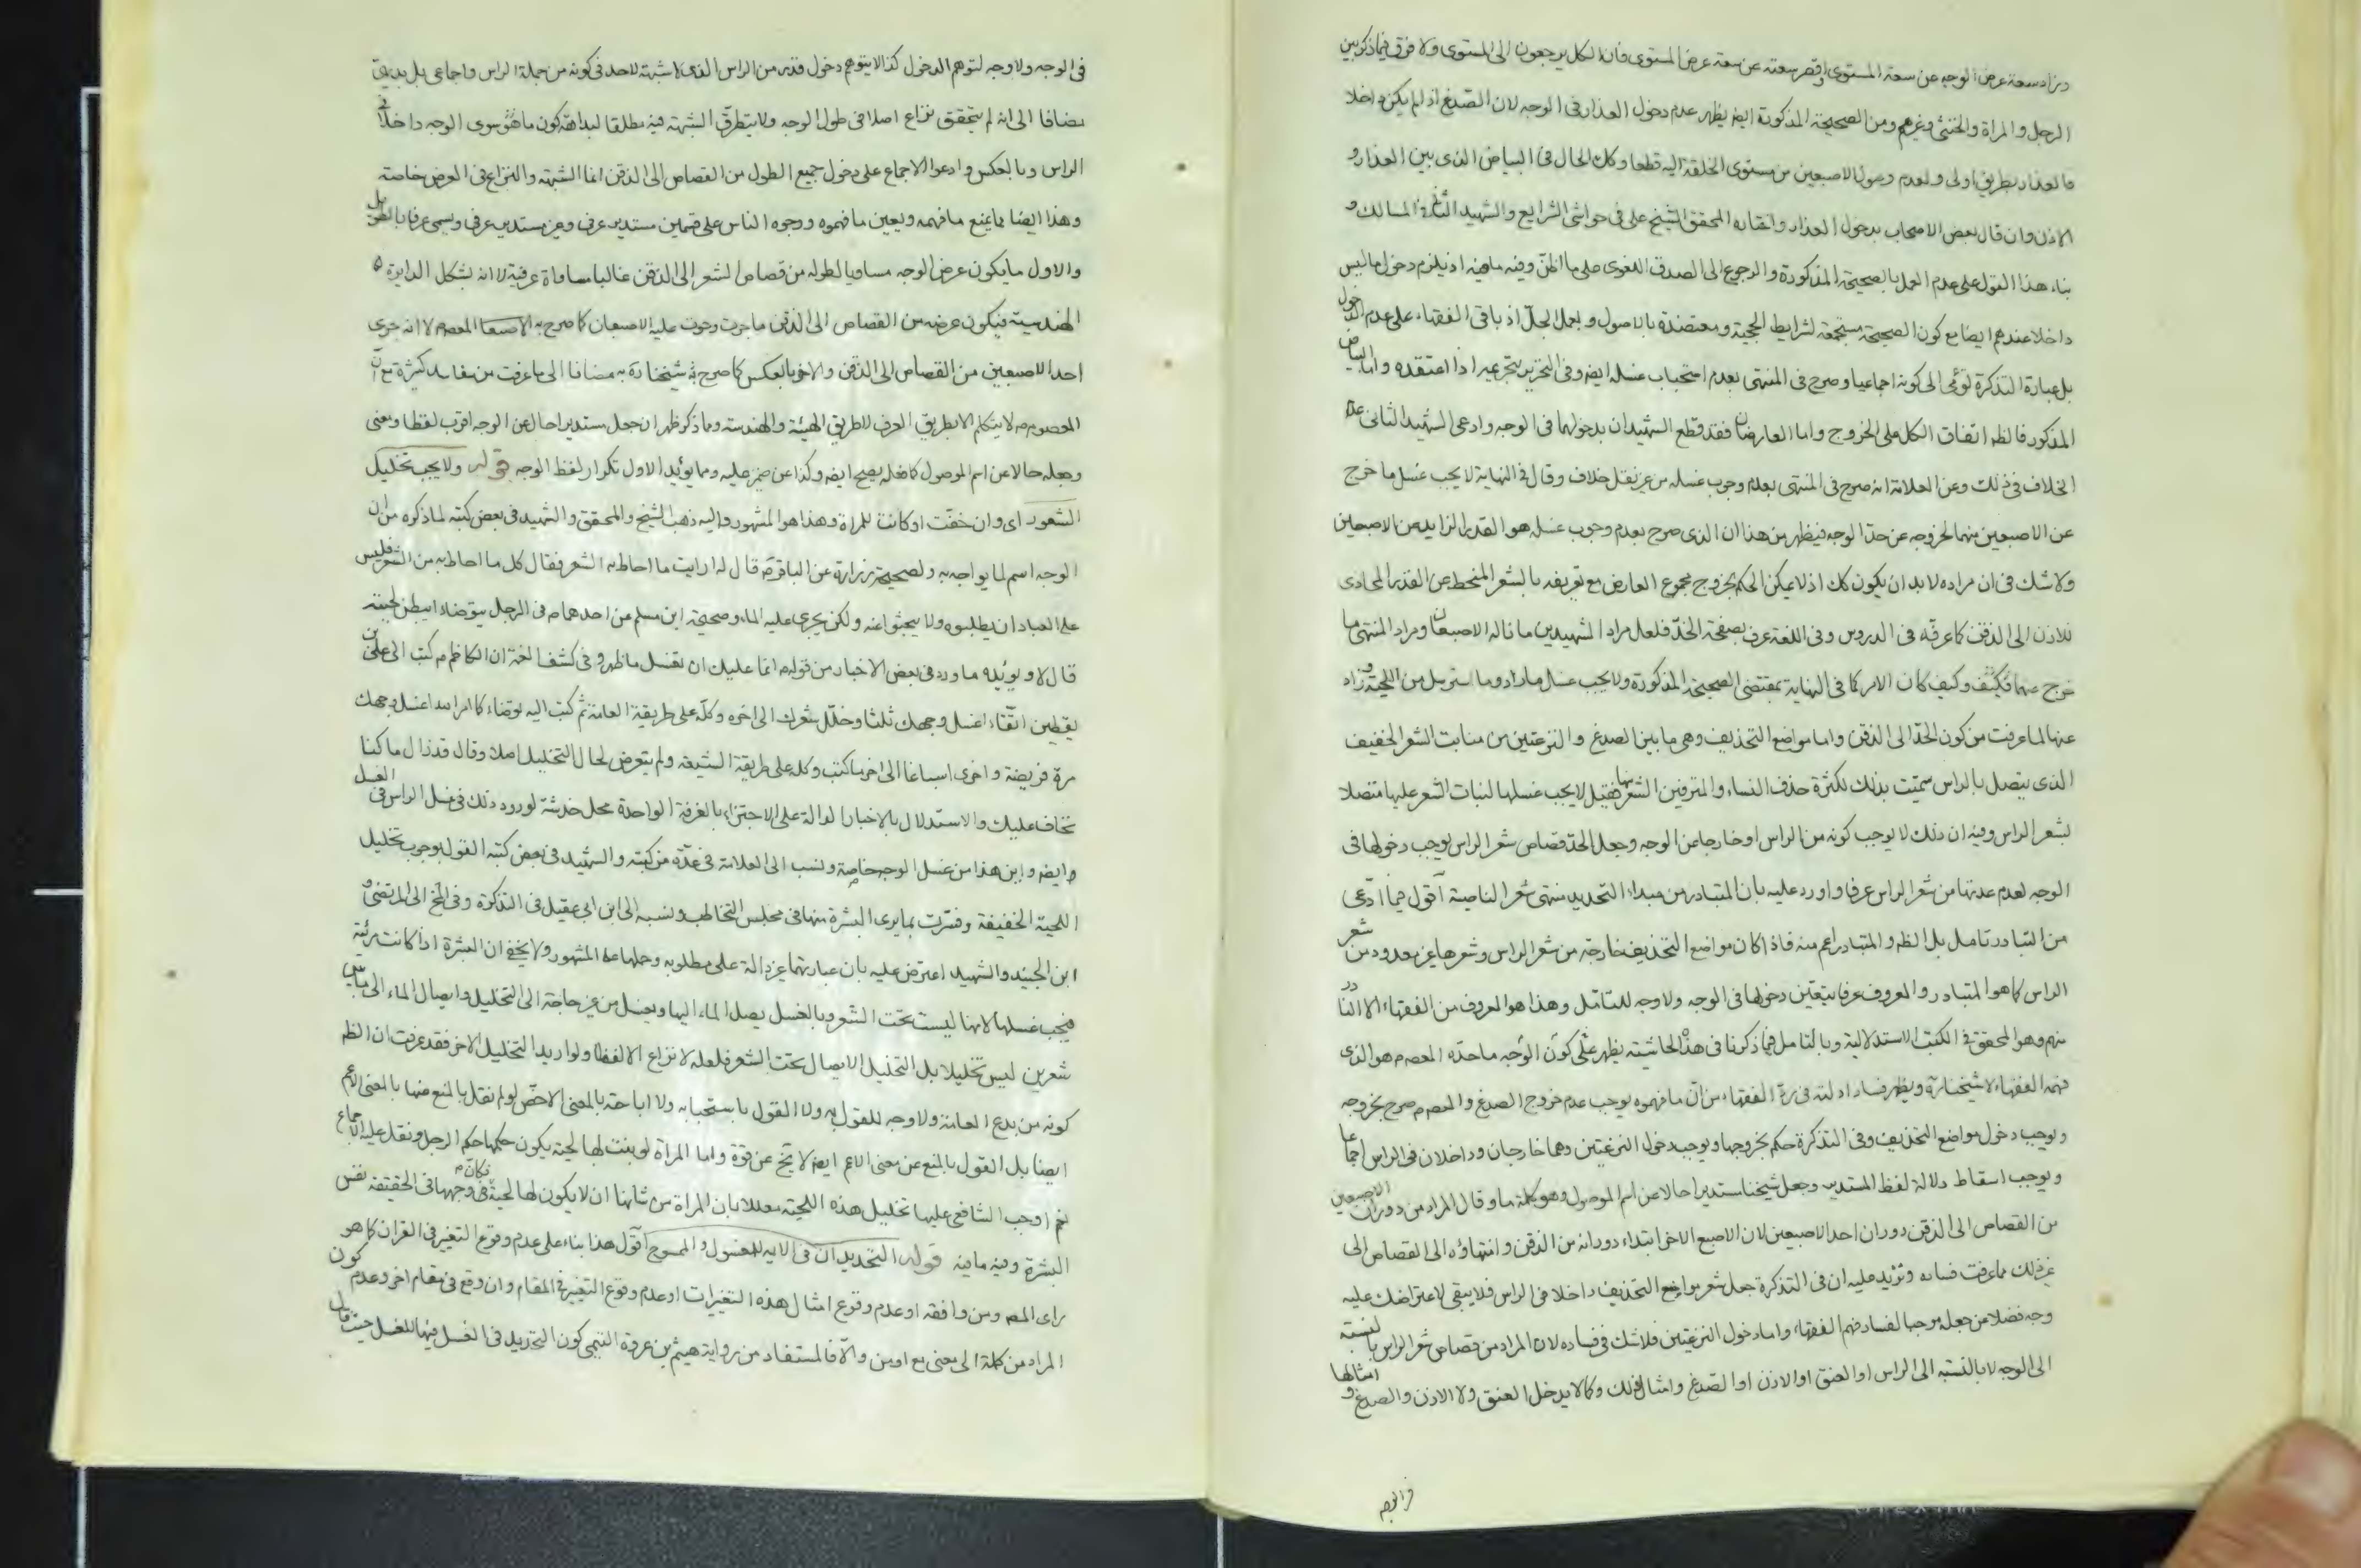 وزاد سعة عرض الوجه عن سعة المستوى او قصر سعته عن سعة عرض المستوى فان الكل يرجعون الى المستوى ولا فرق فيما ذكر بين
الرجل والمراة والخنثى وغيرهم ومن الصحيحة المذكورة ايضه يظهر عدم دخول العذار فى الوجه لان الصدغ اذا لم يكن داخلا
فالعذار بطريق اولى ولعدم وصول الاصبعين من مستوى الخلقة اليه قطعا وكك الحال فى البياض الذى بين العذار و
الاذن وان قال بعض الاصحاب بدخول العذار واختاره المحقق الشيخ على فى حواشى الشرايع والشهيد الثانى فى المسالك و
بناء هذا القول على عدم العمل بالصحيحة المذكورة والرجوع الى الصدق اللغوى على ما اظن وفيه ما فيه اذ يلزم دخول ما ليس
داخلا عندهم ايضا مع كون الصحيحة مستجمعة لشرايط الحجية ومعتضدة بالاصول وبعمل الجلّ اذ باقى الفقهاء على عدم الدخول
بل عبارة التذكرة تومى الى كونه اجماعيا وصرح فى المنتهى بعدم استحباب غسله ايضه وفى التحرير بتحريمه اذا اعتقده واما البياض
المذكور فالظه اتفاق الكل على الخروج واما العارضان فقد قطع الشهيدان بدخولهما فى الوجه وادعى الشهيد الثانى عدم
الخلاف فى ذلك وعن العلامة انه صرح فى المنتهى بعدم وجوب غسله من غير نقل خلاف وقال فى النهاية لا يجب غسل ما خرج
عن الاصبعين منهما لخروجه عن حدّ الوجه فيظهر من هذا ان الذى صرح بعدم وجوب غسله هو القدر الزايد عن الاصبعين
ولا شك فى ان مراده لا بد ان يكون كك اذ لا يمكن الحكم بخروج مجموع العارض مع تعريفه بالشعر المنحط عن القدر المحاذى
للاذن الى الذقن كما عرفّه فى الدروس وفى اللغة عرف بصفحة الخدّ فلعل مراد الشهيدين ما ناله الاصبعان ومراد المنتهى ما
خرج عنهما وكيف كان الامر كما فى النهاية بمقتضى الصحيحة المذكورة ولا يجب غسل ما زاد وما استرسل من اللحية وزاد
عنها لما عرفت من كون الحدّ الى الذقن واما مواضع التحذيف وهى ما بين الصدغ والنزعتين من منابت الشعر الخفيف
الذى يتصل بالراس سميّت بذلك لكثرة حذف النساء والمترفين الشعر منها فقيل لا يجب غسلها لنبات الشعر عليها متصلا
لشعر الراس وفيه ان ذلك لا يوجب كونه من الراس او خارجا من الوجه وجعل الحد قصاص شعر الراس يوجب دخولها فى
الوجه لعدم عدّها من شعر الراس عرفا واورد عليه بان المتبادر من مبداء التحديد منتهى شعر الناصية اقول فيما ادّعى
من التبادر تامل بل الظه والمتبادر اعم منه فاذا كان مواضع التحذيف خارجة من شعر الراس وشعرها غير معدود من شعر
الراس كما هو المتبادر والمعروف عرفا يتعين دخولها فى الوجه ولا وجه للتامل وهذا هو المعروف من الفقهاء الا النادر
منهم وهو المحقق فى الكتب الاستدلالية وبالتامل فيما ذكرنا فى هذه الحاشية يظهر عليك كون الوجه ما حدّه المعصم هو الذى
فهمه الفقهاء لا شيخنا ره ويظهر فساد ادلته فى ردّ الفقهاء من انّ ما فهموه يوجب عدم خروج الصدغ والمعصم صرح بخروجه
ويوجب دخول مواضع التحذيف وفى التذكرة حكم بخروجها ويوجب دخول النزعتين وهما خارجان وداخلان فى الراس اجماعا
ويوجب اسقاط دلالة لفظ المستدير وجعل شيخنا مستديرا حالا عن اسم الموصول وهو كلمة ما وقال المراد من دوران الاصبعين
من القصاص الى الذقن دوران احد الاصبعين لان الاصبع الاخر ابتداء دورانه من الذقن وانتهاؤه الى القصاص الى
غير ذلك مما عرفت فساده ونزيد عليه ان فى التذكرة جعل شعر مواضع التحذيف داخلا فى الراس فلا يبقى لاعتراضك عليه
وجه فضلا من جعله موجبا لفساد فهم الفقهاء واما دخول النزعتين فلا شك فى فساده لان المراد من قصاص شعر الراس بالنسبة
الى الوجه لا بالنسبه الى الراس او العنق او الاذن او الصدغ وامثال ذلك وكما لا يدخل العنق ولا الاذن والصدغ وامثالها
فى الوجه ولا وجه لتوهم الدخول كذا لا يتوهم دخول قدر من الراس الذى لا شبهة لاحد فى كونه من جملة الراس واجماعى بل بديهى
مضافا الى انه لم يتحقق نزاع اصلا فى طول الوجه ولا يتطرق الشبهة فيه مطلقا لبداهة كون ما هو سوى الوجه داخلا فى
الراس وبالعكس وادعوا الاجماع على دخول جميع الطول من القصاص الى الذقن انما الشبهة والنزاع فى العرض خاصة
وهذا ايضا مما يمنع ما فهمه ويعين ما فهموه ووجوه الناس على قسمين مستدير عرفى وغير مستدير عرفى ويسمى عرفا بالطويل
والاول ما يكون عرض الوجه مساويا لطوله من قصاص الشعر الى الذقن غالبا مساواة عرفية لا انه بشكل الدايرة
الهندسية فيكون عرضه من القصاص الى الذقن ما جرت وحوت عليه الاصبعان كما صرح به المعصوم لا انه جرى
احد الاصبعين من القصاص الى الذقن والاخر بالعكس كما صرح به شيخنا ره به مضافا الى ما عرفت من مفاسد كثيرة مع انّ
المعصوم م لا يتكلم الا بطريق العرف لا طريق الهيئة والهندسة ومما ذكر ظهر ان جعل مستديرا حالا عن الوجه اقرب لفظا ومعنى
وجعله حالا عن اسم الموصول كما فعله يصح ايضه وكذا عن ضمير عليه ومما يوئيد الاول تكرار لفظ الوجه قوله ولا يجب تخليل
الشعور اى وان خفّت او كانت للمراة وهذا هو المشهور واليه ذهب الشيخ والمحقق والشهيد فى بعض كتبه لما ذكروه من ان
الوجه اسم لما يواجه به ولصحيحة زرارة عن الباقر م قال له ارايت ما احاط به الشعر فقال كل ما احاط به من الشعر فليس
على العباد ان يطلبوه ولا يبحثوا عنه ولكن يجرى عليه الماء وصحيحة ابن مسلم عن احدهما م فى الرجل يتوضاء ايبطن لحيته
قال لا ويويّده ما ورد فى بعض الاخبار من قوله م انما عليك ان تغسل ما ظهر وفى كشف الغمة ان الكاظم م كتب الى على بن
يقطين اتّقاء اغسل وجهك ثلثا وخلّل شعرك الى اخره وكلّه على طريقة العامة ثم كتب اليه توضاء كما امر الله اغسل وجهك
مرة فريضة واخرى اسباغا الى اخر ما كتب وكله على طريقة الشيعه ولم يتعرض لحال التخليل اصلا وقال قد زال ما كنا
نخاف عليك والاستدلال بالاخبار الدالة على الاجتزاء بالغرفة الواحدة محل خدشة لورود ذلك فى غسل الراس فى الغسل
وايضه واين هذا من غسل الوجه خاصة ونسب الى العلامة فى عدّة من كتبه والشهيد فى بعض كتبه القول بوجوب تخليل
اللحية الخفيفة وفسّرت بما يرى البشرة منها فى مجلس التخاطب ونسبه الى ابن ابى عقيل فى التذكرة وفى المخ الى المرتضى و
ابن الجنيد والشهيد اعترض عليه بان عبارتهما غير دالة على مطلوبه وحملها على المشهور ولا يخفى ان البشرة اذا كانت مرئية
فيجب غسلها لانها ليست تحت الشعر وبالغسل يصل الماء اليها ويغسل من غير حاجة الى التخليل وايصال الماء الى ما بين
شعرين ليس تخليلا بل التخليل الايصال تحت الشعر فلعله لا نزاع الا لفظا ولو اريد التخليل الاخر فقد عرفت ان الظه
كونه من بدع العامة ولا وجه للقول به ولا القول باستحبابه ولا اباحته بالمعنى الاخصّ لو لم نقل بالمنع منها بالمعنى الاعم
ايضا بل القول بالمنع عن معنى الاعم ايضه لا يخ عن قوة واما المراة لو نبت لها لحية يكون حكمها حكم الرجل ونقل عليه اجماع
نعم اوجب الشافعى عليها تخليل هذه اللحية معللا بان المراة من شانها ان لا يكون لها لحية فكانّ وجهها فى الحقيقة نفس
البشرة وفيه ما فيه قوله التحديدان فى الاية للمغسول والممسوح اقول هذا بناء على عدم وقوع التغير فى القران كما هو
راى المصه ومن وافقه او عدم وقوع امثال هذه التغيرات او عدم وقوع التغير فى المقام وان وقع فى مقام اخر وعدم كون
المراد من كلمة الى معنى مع او من والّا فالمستفاد من رواية هيثم بن عروة التيمى كون التحديد فى الغسل فيها للغسل حيث قال